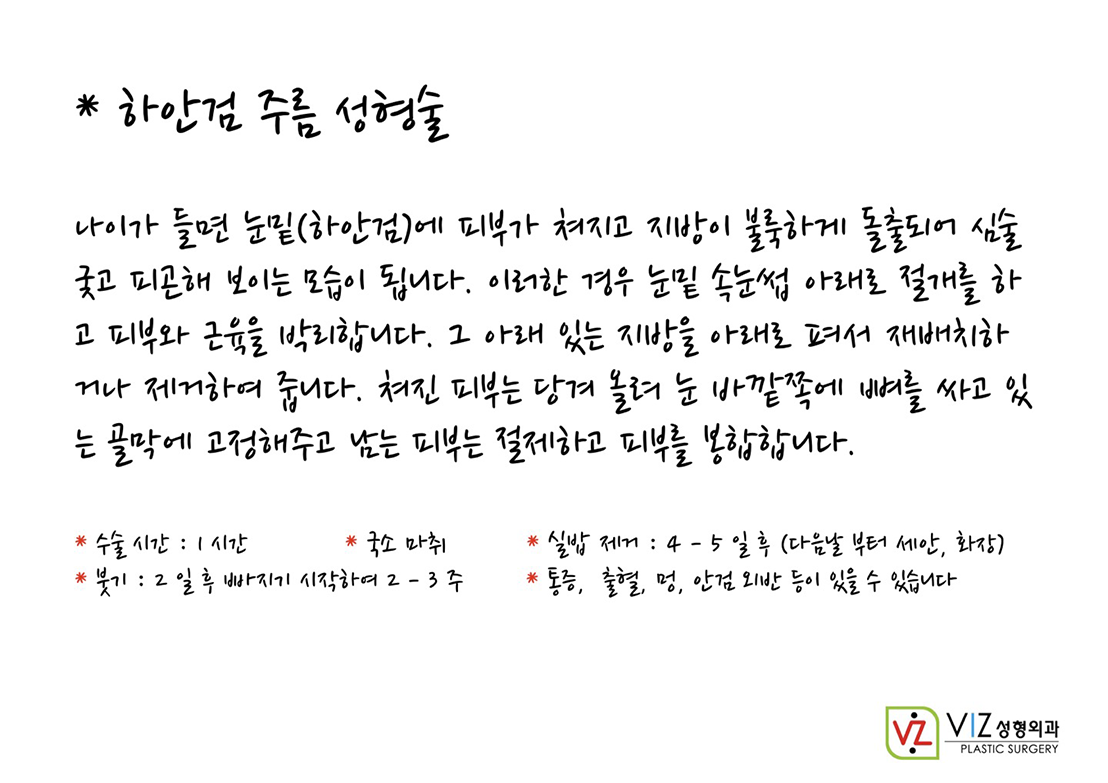 * 하안검 주름 성형술
나이가 들면 눈밑(하안검)에 피부가 쳐지고 지방이 불룩하게 돌출되어 심술
궂고 피곤해 보이는 모습이 됩니다. 이러한 경우 눈밑 속눈썹 아래로 절개를 하
고 피부와 근육을 박리합니다. 그 아래 있는 지방을 아래로 펴서 재배치하
거나 제거하여 줍니다. 쳐진 피부는 당겨 올려 눈 바깥쪽에 뼈를 싸고 있
는 골막에 고정해주고 남는 피부는 절제하고 피부를 봉합합니다.
* 수술 시간 : 1 시간 * 국소 마취 * 실밥 제거 : 4 - 5 일 후 (다음날 부터 세안, 화장)
* 붓기 : 2 일 후 빠지기 시작하여 2 - 3 주 * 통증, 출혈, 멍, 안검 외반 등이 있을 수 있습니다
VZ VIZ 성형외과
PLASTIC SURGERY